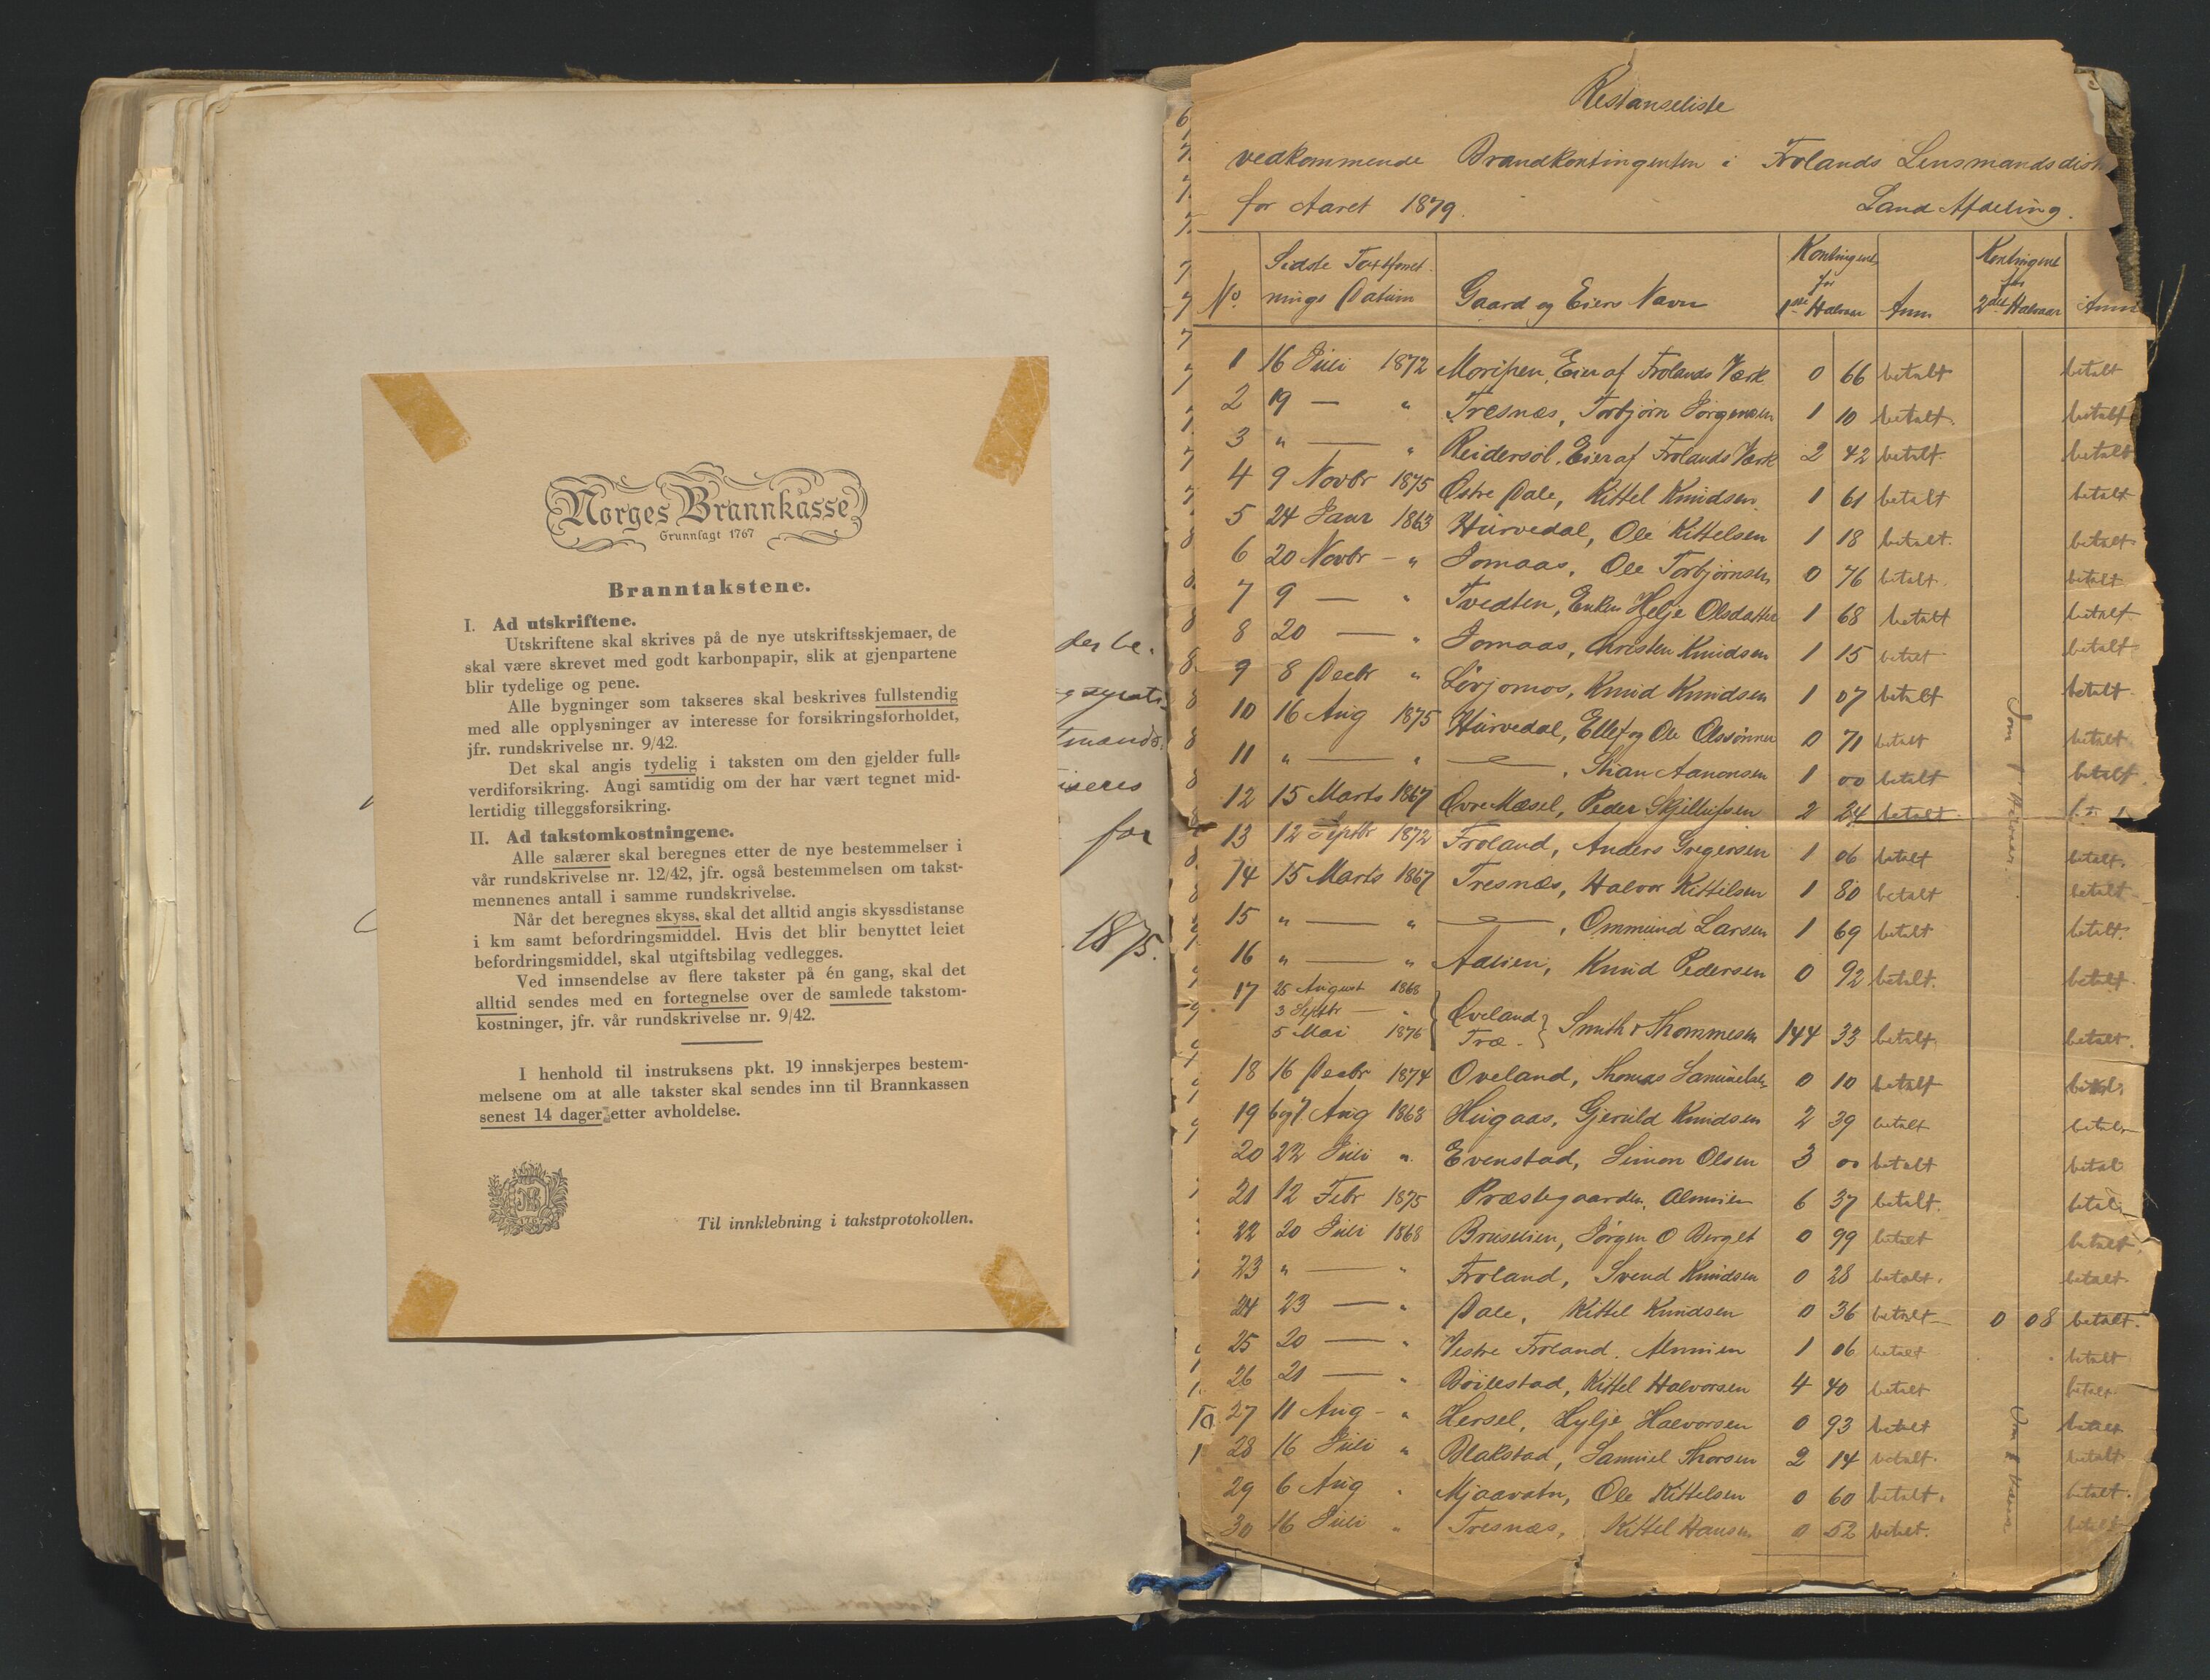 Norges Brannkasse
Grunnlagt 1767
Branntakstene.
I. Ad utskriftene.
Utskriftene skal skrives på de nye utskriftsskjemaer, de
skal være skrevet med godt karbonpapir, slik at gjenpartene
blir tydelige og pene.
Alle bygninger som takseres skal beskrives fullstendig
med alle opplysninger av interesse for forsikringsforholdet,
jfr. rundskrivelse nr. 9/42.
Det skal angis tydelig i taksten om den gjelder full-
verdiforsikring. Angi samtidig om der har vært tegnet mid-
lertidig tilleggsforsikring.
II. Ad takstomkostningene.
Alle salærer skal beregnes etter de nye bestemmelser i
vår rundskrivelse nr. 12/42, jfr. også bestemmelsen om takst-
mennenes antall i samme rundskrivelse.
Når det beregnes skyss, skal det alltid angis skyssdistanse
i km samt befordringsmiddel. Hvis det blir benyttet leiet
befordringsmiddel, skal utgiftsbilag vedlegges.
Ved innsendelse av flere takster på én gang, skal det
alltid sendes med en fortegnelse over de samlede takstom-
kostninger, jfr. vår rundskrivelse nr. 9/42.
I henhold til instruksens pkt. 19 innskjerpes bestem-
melsene om at alle takster skal sendes inn til Brannkassen
senest 14 dager etter avholdelse.
Til innklebning i takstprotokollen.
for
1875.
Restanseliste
vedkommende Brandkontingenten i Frolands Lensmandsdist
for Aaret 1879. Land Afdeling.
No. Sidste Taxtforretnings Datum Gaard og Eiers Navn Kontingent for 1ste Halvaar Anm Kontingent for 2det Halvaar Anm
1 16 Juli 1872 Moripen, Eier af Frolands Værk 0 66 betalt betalt
2 19 — " Tresnæs, Torbjørn Jørgensen 1 10 betalt. betalt
3 " — " Reidersøl, Eier af Frolands Værk 2 42 betalt. betalt
4 9 Novbr 1875 Østre Dale, Kittel Knudsen. 1 61 betalt betalt
5 24 Janr 1863 Hurvedal, Ole Kittelsen 1 18 betalt. betalt
6 20 Novbr - " Jomaas, Ole Torbjørnsen 0 76 betalt. betalt
7 9 — " Tvedten, Enken Helje Olsdatter 1 68 betalt betalt
8 20 — " Jomaas, Christen Knudsen 1 15 betalt betalt
9 8 Decbr " Lørjomos, Knud Knudsen 1 07 betalt betalt
10 16 Aug 1875 Hurvedal, Ellef og Ole Olssønner 0 71 betalt betalt
11 " — " — , Stian Aanonsen 1 00 betalt betalt
12 15 Marts 1867 Øvre Mæsel, Peder Skjellufsen 2 24 betalt
13 12 Septbr 1872 Froland, Anders Gregersen 1 06 betalt betalt.
14 15 Marts 1867 Tresnæs, Halvor Kittilsen 1 80 betalt betalt
15 " — " — , Ommund Larsen 1 69 betalt betalt.
16 " — " Aalien, Knud Pedersen 0 92 betalt. betalt
17 25 August 1868
3 Septbr — " Oveland
5 Mai 1876 Træ. Smith & Thommesen 144 33 betalt betalt.
18 16 Decbr 1874 Oveland, Thomas Samuelsen 0 10 betalt betalt
19 6 og 7 Aug 1868 Hugaas, Gjeruld Knudsen 2 39 betalt betalt
20 22 Juli " Evenstad, Simon Olsen 3 00 betalt betal
21 12 Febr 1875 Præstegaarden, Almuen 6 37 betalt. betal
22 20 Juli 1868 Bruselien, Jørgen O Berget 0 99 betalt betalt
23 " — " Froland, Svend Knudsen 0 28 betalt. betalt.
24 23 — " Dale, Kittel Knudsen 0 36 betalt 0 08 betalt.
25 20 — " Vestre Froland. Almuen 1 06 betalt betalt
26 21 — " Bøilestad, Kittel Halvorsen 4 40 betalt betalt.
27 11 Aug - " Hersel, Hylje Halvorsen 0 93 betalt betalt
28 16 Juli " Blakstad, Samuel Thorsen 2 14 betalt. betalt
29 6 Aug " Mjaavatn, Ole Kittelsen 0 60 betalt. betalt.
30 16 Juli " Tresnæs, Kittel Hansen 0 52 betalt. betalt